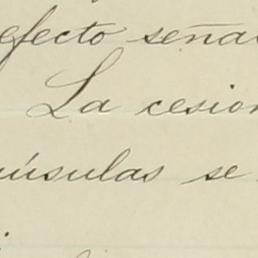 efecto seña
La cesion
úsulas se